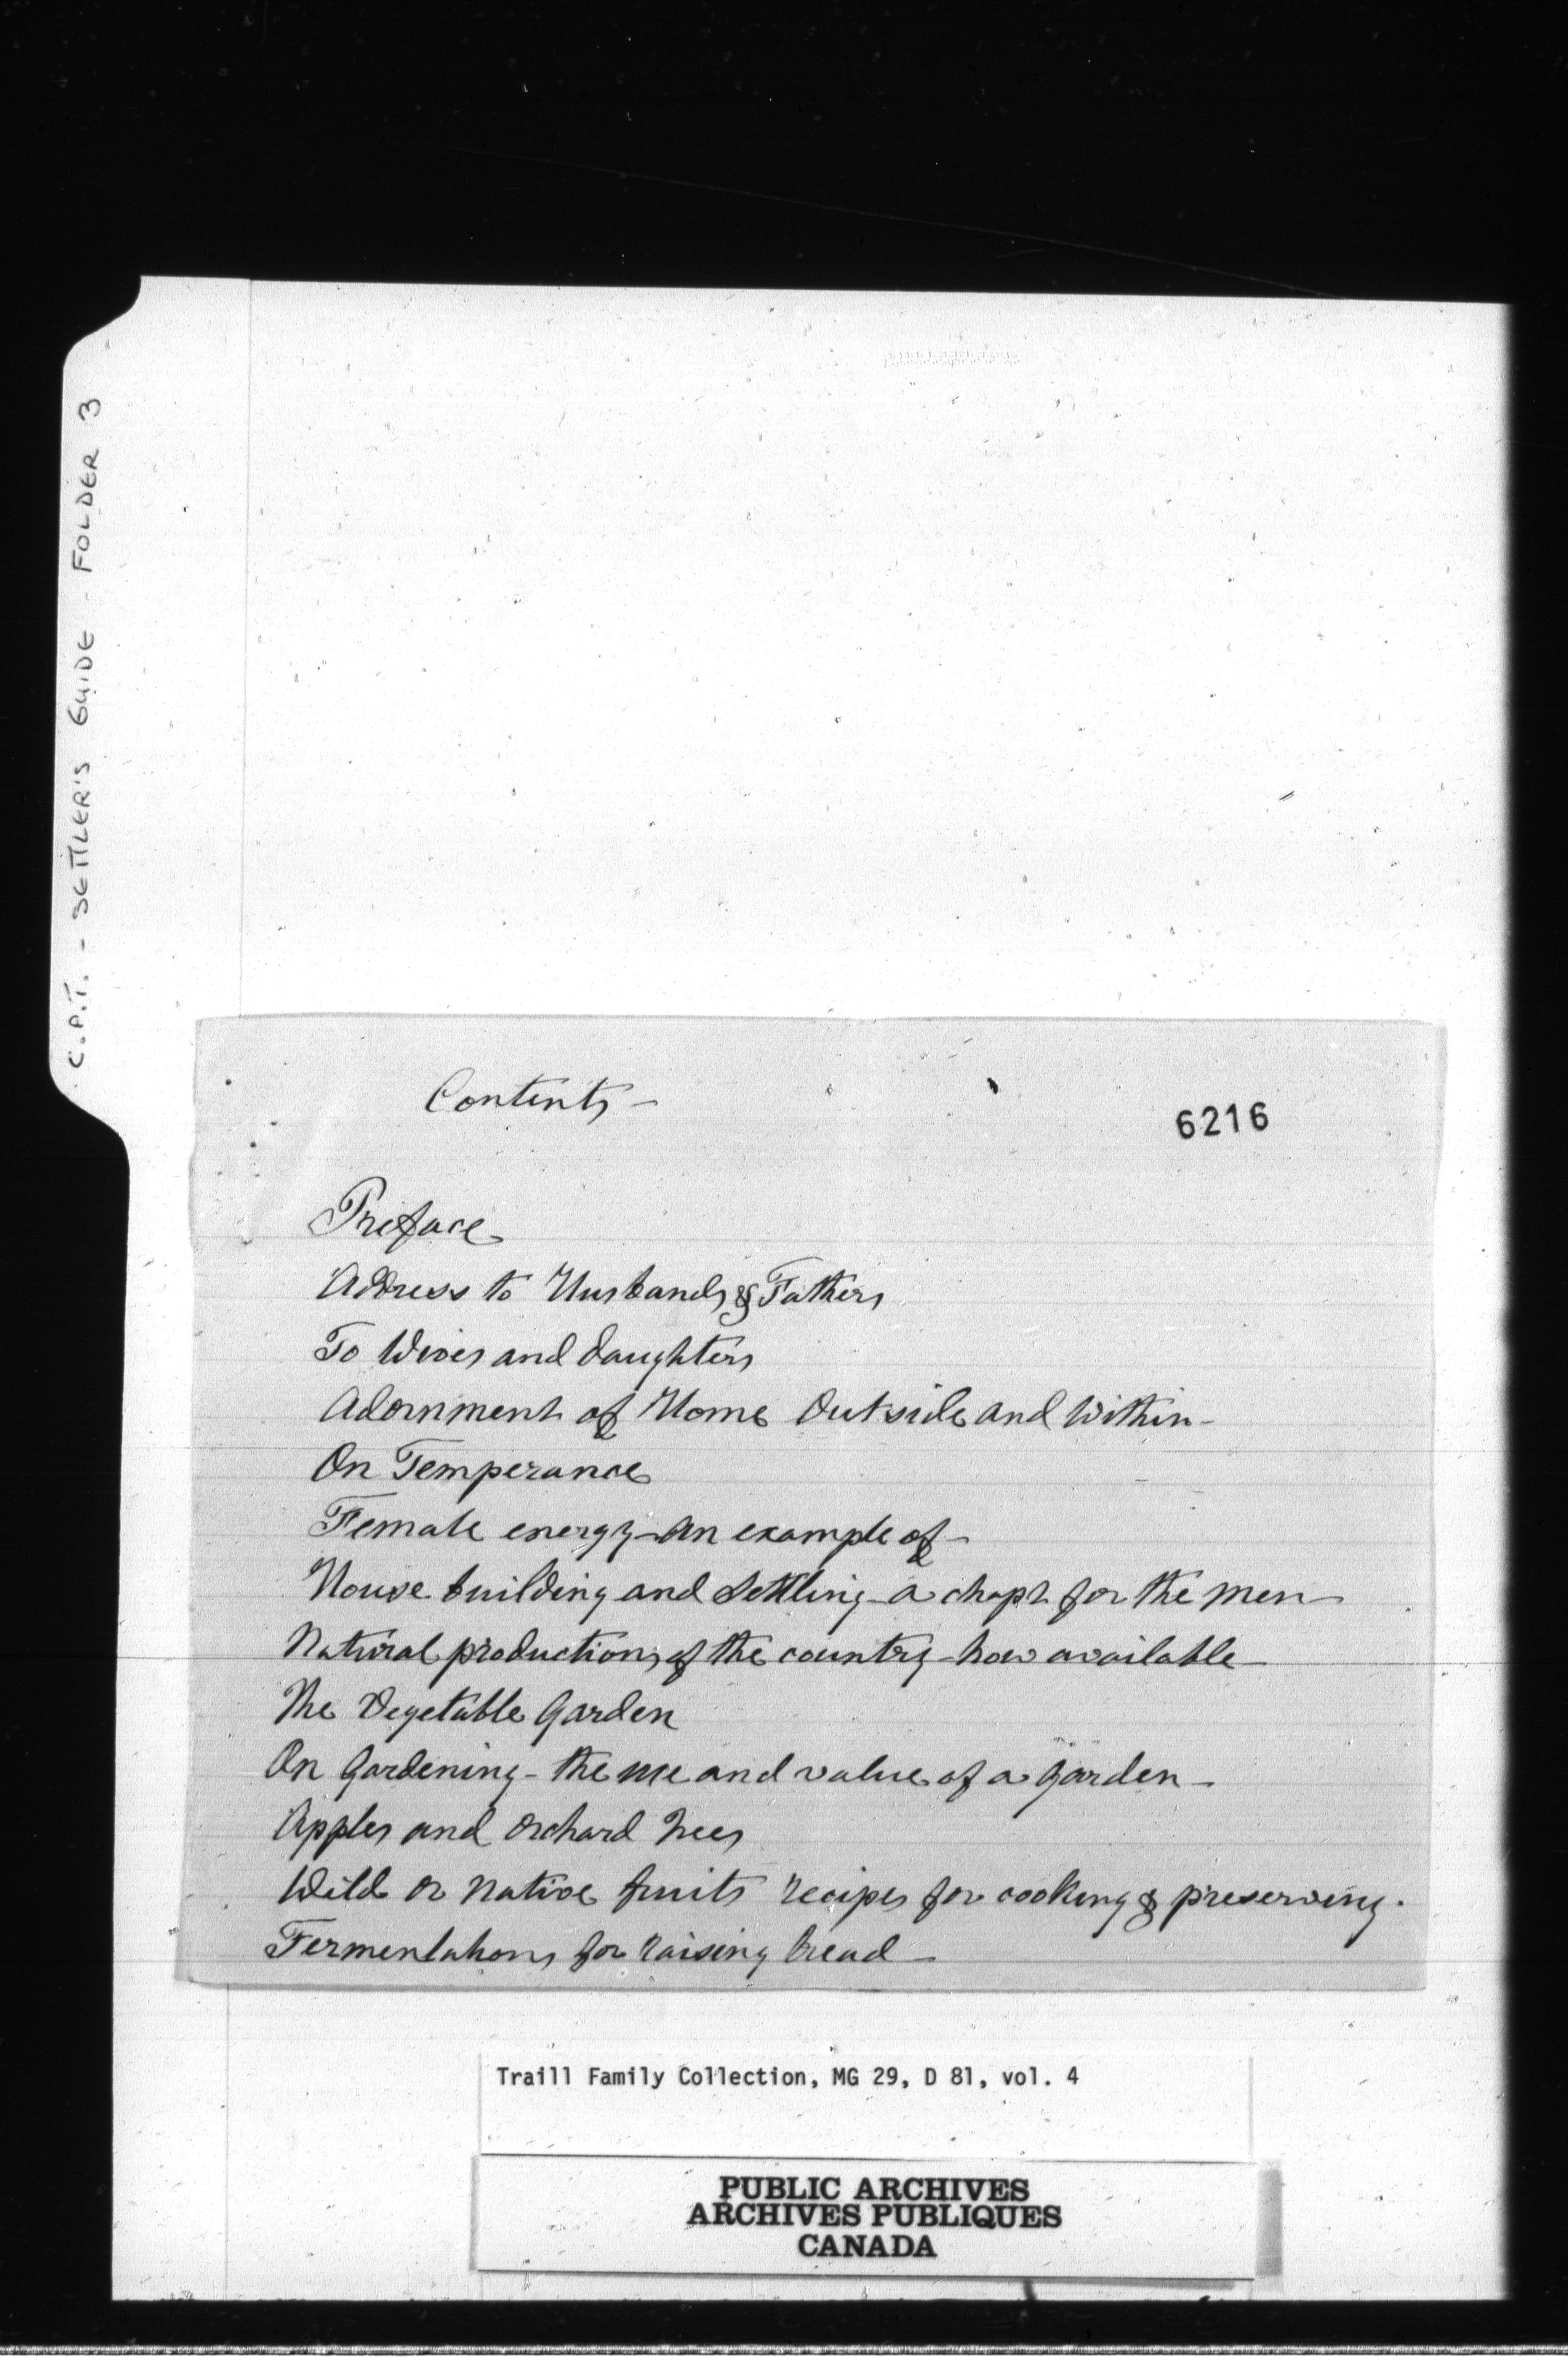 C.P.T. - SETTLER'S GUIDE - FOLDER 3
Contents -
6216
Preface
Address to Husbands & Fathers
To Wives and daughters
Adornment of Home Outside and Within -
On Temperance
Female energy - An example of -
House building and Settling - a chapt for the Men -
Natural productions of the country - how available -
The Vegetable Garden
On Gardening - the use and value of a Garden -
Apples and Orchard Trees
Wild or Native fruits recipes for cooking & preserving.
Fermentations for raising bread -
Traill Family Collection, MG 29, D 81, vol. 4
PUBLIC ARCHIVES
ARCHIVES PUBLIQUES
CANADA